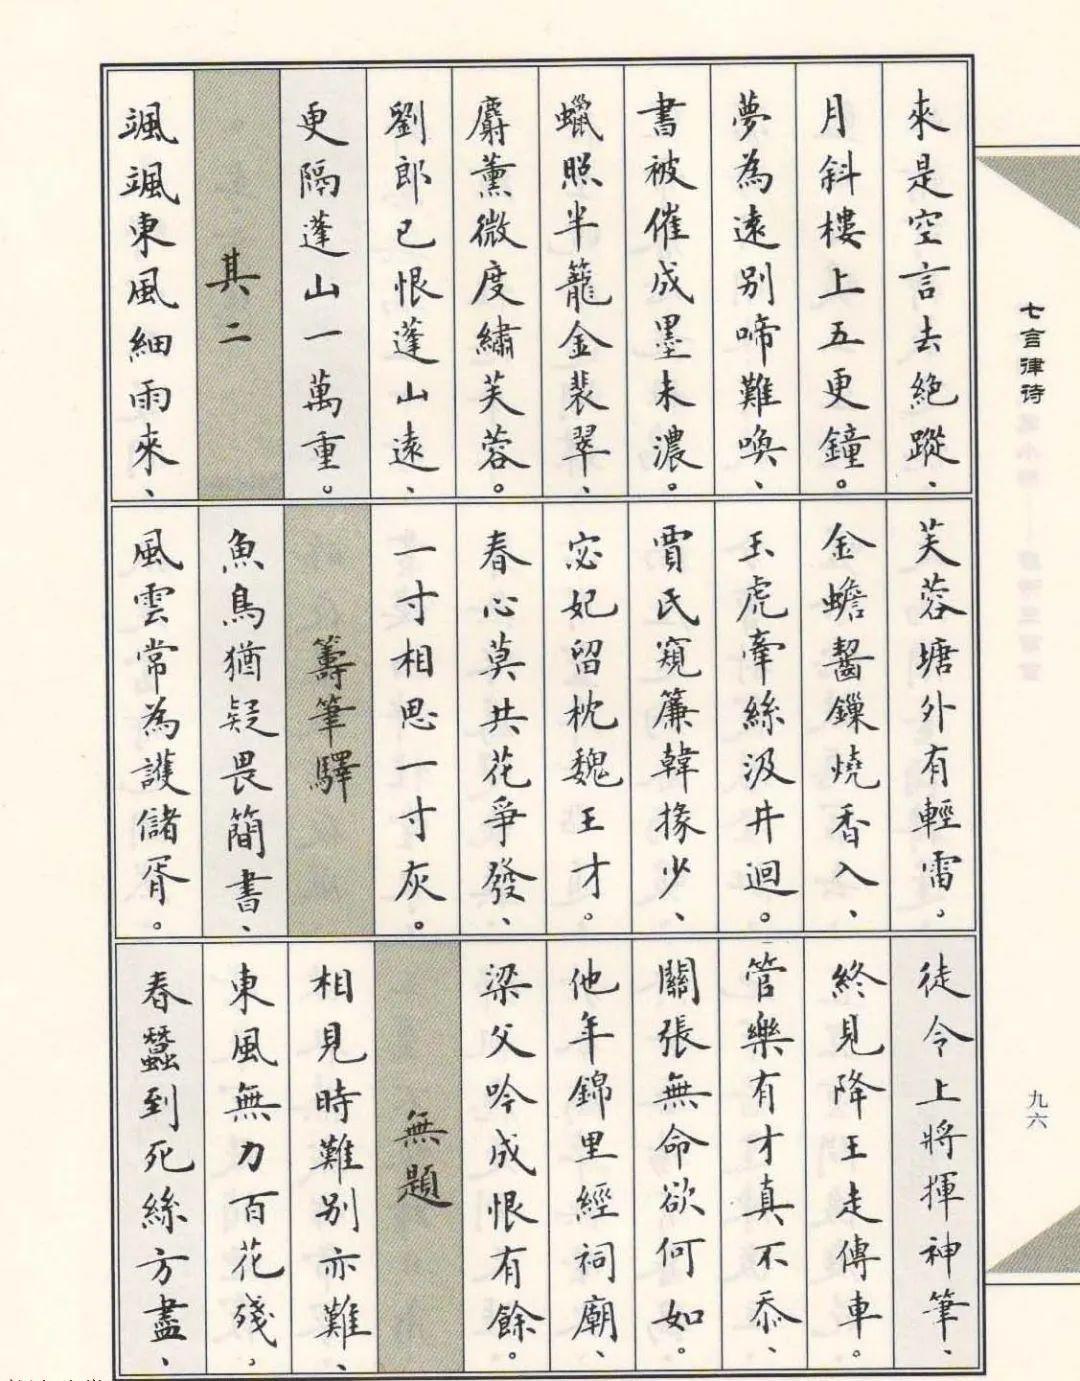 來是空言去絕蹤、
月斜樓上五更鐘。
夢為遠別啼難喚、
書被催成墨未濃。
蠟照半籠金裴翠、
麝薰微度繡芙蓉。
劉郎已恨蓬山遠、
更隔蓬山一萬重。
其二
颯颯東風細雨來、
芙蓉塘外有輕雷。
金蟾齧鏁燒香入、
玉虎牽絲汲井迴。
賈氏窺簾韓掾少、
宓妃留枕魏王才。
春心莫共花爭發、
一寸相思一寸灰。
籌筆驛
魚鳥猶疑畏簡書、
風雲常為護儲胥。
徒令上將揮神筆、
終見降王走傳車。
管樂有才真不忝、
關張無命欲何如。
他年錦里經祠廟、
梁父吟成恨有餘。
無題
相見時難別亦難、
東風無力百花殘。
春蠶到死絲方盡、
七言律诗
九六